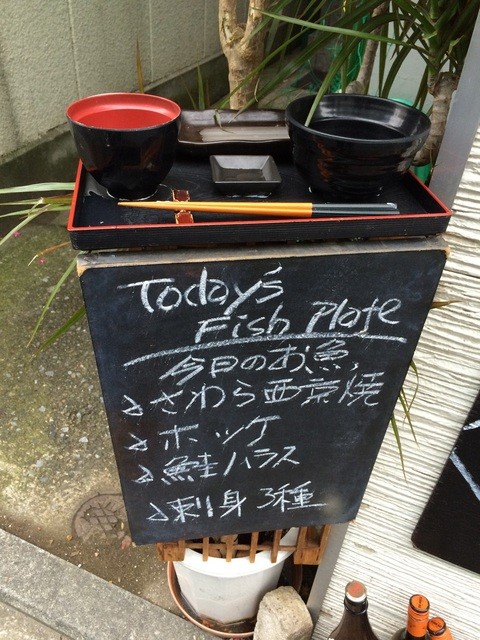 Today's
Fish Plate
今日のお魚
さわら西京焼
ホッケ
鮭ハラス
刺身3種